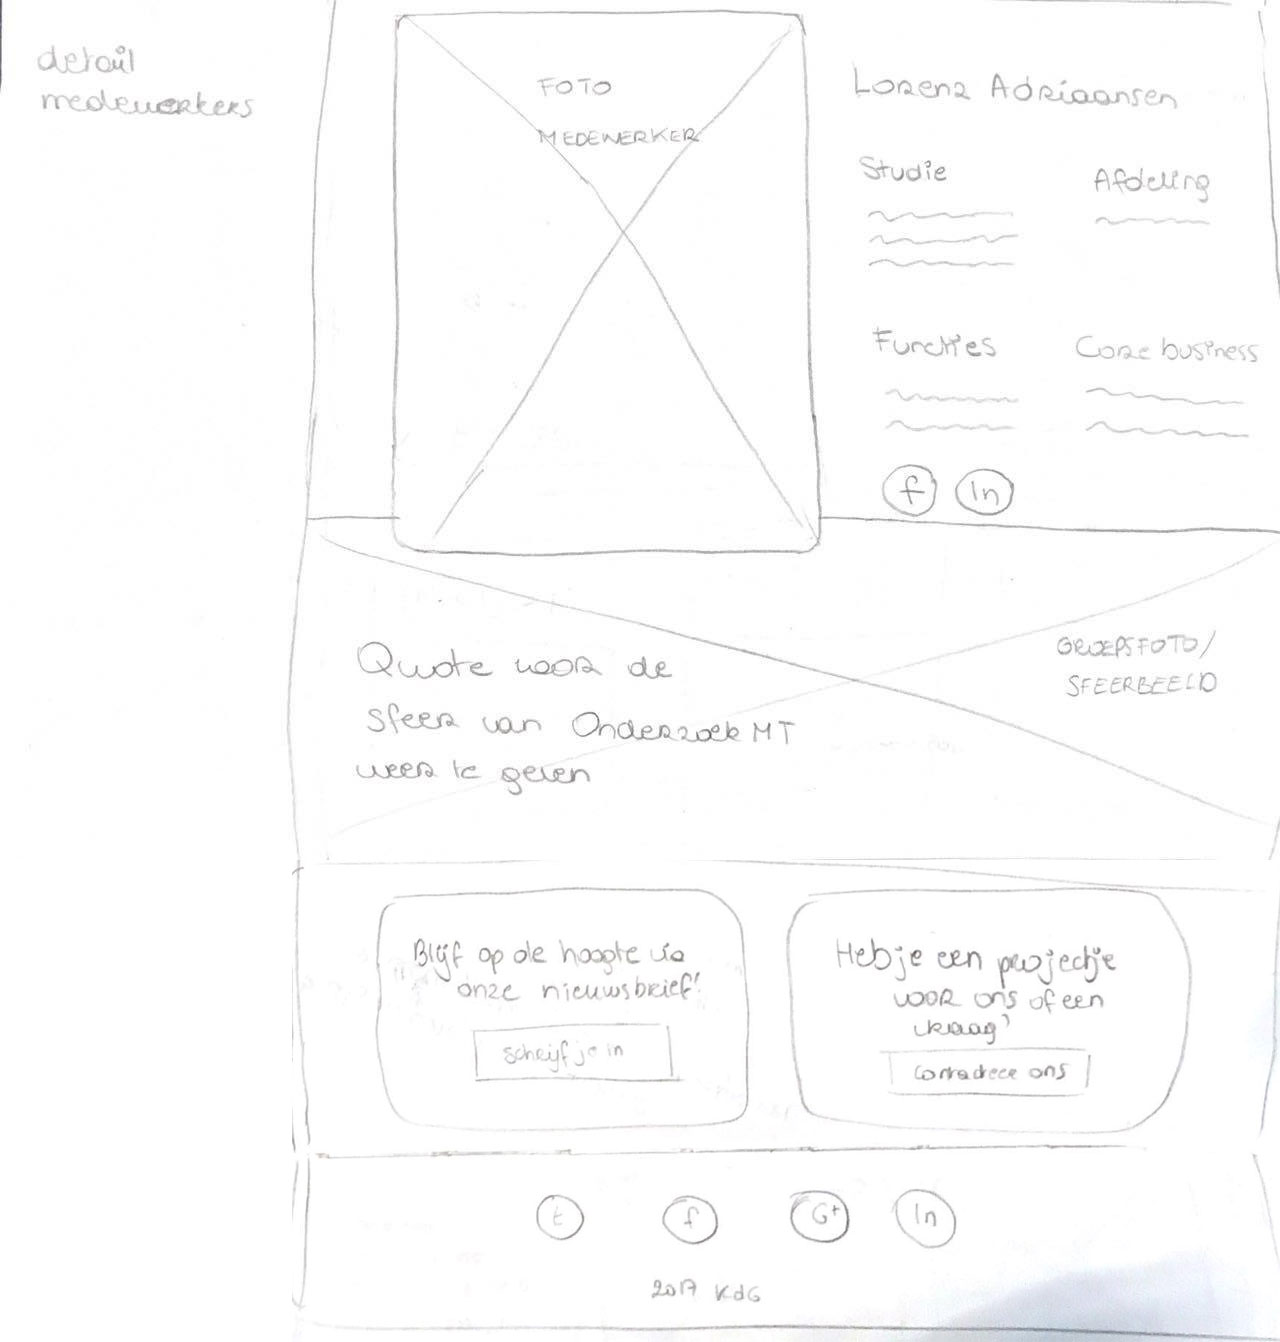 detail
medewerkers
FOTO
MEDEWERKER
Lorenz Adriaansen
Studie
Afdeling
Functies
Core business
f
in
Quote voor de
sfeer van Onderzoek MT
weer te geven
GROEPSFOTO/
SFEERBEELD
Blijf op de hoogte via
onze nieuwsbrief!
Schrijf je in
Heb je een projectje
voor ons of een
vraag?
Contacteer ons
t
f
G+
in
2017 KdG